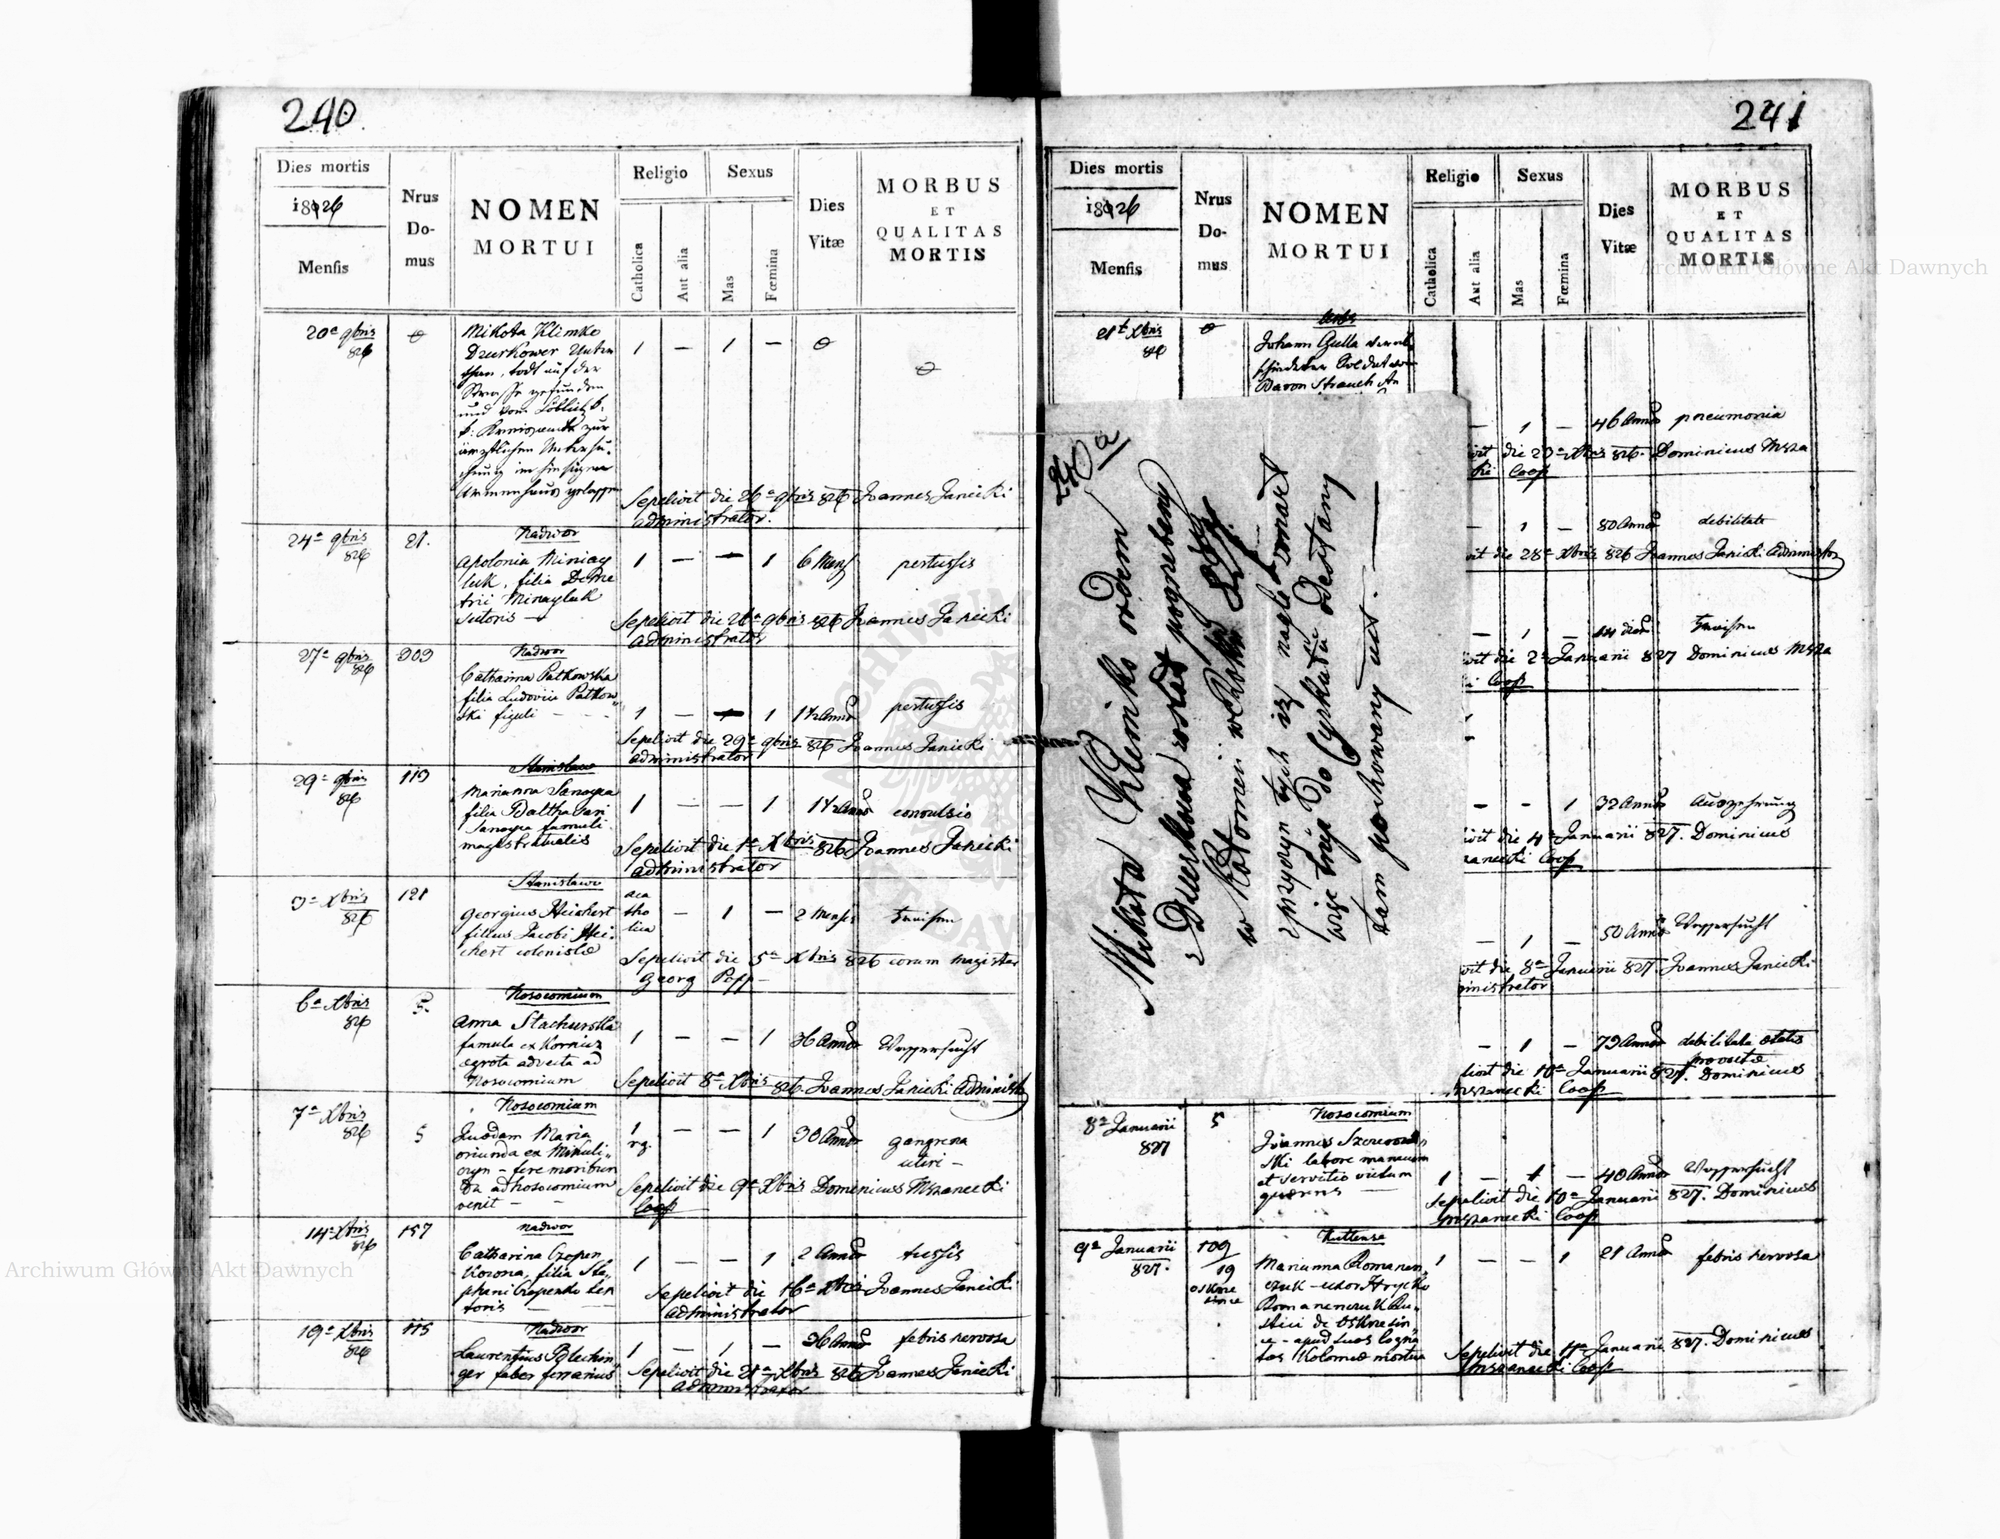 240
Dies mortis
1826
Mensis
Nrus
Do-
mus
NOMEN
MORTUI
Religio
Catholica
Aut alia
Sexus
Mas
Fœmina
Dies
Vitæ
MORBUS
ET
QUALITAS
MORTIS
20a 9bris
826
Mikola Klimko
Dzurkower Unter
than, todt auf der
Strasse gefunden
und vom Löblich k.
k. Kreisamte zur
ärztlichen Untersu-
chung im hiesigen
1 — 1 —
Sepelivit die 26a 9bris 826 Joannes Janicki
administrator.
24a 9bris
826
21.
Nadwor
Apolonia Miniay
luk, filia Deme
trii Minayluk
Sutoris —
1 — — 1
6 Mens
pertussis
Sepelivit die 26a 9bris 826 Joannes Janicki
administrator
27a 9bris
826
303
Nadwor
Catharina Patkowska
filia Ludovici Patkow
ski figuli — —
1 — — 1
1½ Annor
pertussis
Sepelivit die 29a 9bris 826 Joannes Janicki
administrator
29a 9bris
826
113
Stanislawo
Marianna Sanoyca
filia Balthasari
Sanoyca famuli
magistratualis
1 — — 1
1½ Annor
convulsio
Sepelivit die 1a Xbris 826 Joannes Janicki
administrator
3a Xbris
826
121
Stanislawo
Georgius Heichert
filius Jacobi Hei-
chert colonistæ
aca
tho
lica
— 1 —
2 Mensis
Sepelivit die 5a Xbris 826 eorum magister
Georg Popp —
6a Xbris
826
5.
Nosocomium
Anna Stachurska
famula ex Kornicz
ægrota advecta ad
Nosocomium
1 — — 1
36 Annor
Wassersucht
Sepelivit 8a Xbris 826. Joannes Janicki Administr
7a Xbris
826
5
Nosocomium
Quædam Maria
oriunda ex Mikuli-
czyn — fere moribun
da ad nosocomium
venit —
1
rg.
— — 1
30 Annor
gangrena
uteri —
Sepelivit die 9a Xbris Dominicus Mszanecki
Coop
14a Xbris
826
157
Nadwor
Catharina Czopen
kowna, filia Ste-
phani Czopenko
1 — — 1
2 Annor
tussis
Sepelivit die 16a Xbris Joannes Janicki
administrator
19a Xbris
826
115
Nadwor
Laurentius Blechin-
ger faber ferrarius
1 — 1 —
36 Annor
febris nervosa
Sepelivit die 21a Xbris 826 Joannes Janicki
administrator
241
Dies mortis
1826
Mensis
Nrus
Do-
mus
NOMEN
MORTUI
Religio
Catholica
Aut alia
Sexus
Mas
Fœmina
Dies
Vitæ
MORBUS
ET
QUALITAS
MORTIS
21t Xbris
826
Johann Gulla
Baron Strauch
— 1 —
46 Annor
pneumonia
vit die 23a Xbris 826. Dominicus Msza
cki Coop
— 1 —
80 Annor
debilitate
vit die 28a Xbris 826 Joannes Janicki Administr
— 1 —
14 dier
vit die 2a Januarii 827 Dominicus Msza
Coop
— — 1
32 Annor
Auszehrung
vit die 4a Januarii 827. Dominicus
Mszanecki Coop
— 1 —
50 Annor
Wassersucht
vit die 8a Januarii 827 Joannes Janicki
administrator
— 1 —
73 Annor
debilitate ætatis
provectæ
livit die 10a Januarii 827. Dominicus
Mszanecki Coop
8a Januarii
827
5
Nosocomium
Joannes Szczurow-
ski labore manuum
et servitio victum
quærens —
1 — 1 —
40 Annor
Wassersucht
Sepelivit die 10a Januarii 827. Dominicus
Mszanecki Coop
9a Januarii
827.
109
19
Oskrze
since
Ruthena
Marianna Romanen-
czuk — uxor Hrycko
Romanenczuk Ru-
stici de Oskrzesin-
ce — apud suos cogna
tos Kolomeæ mortua
1 — — 1
21 Annor
febris nervosa
Sepelivit die 11a Januarii 827. Dominicus
Mszanecki Coop
240 a
Mikola Klimko rodem
z Dzurkowa został pogrzebany
w Kołomei
przyczyn tych iż nagle umarł
więc tutaj do Cyrkułu odesłany
tam pochowany iest. —
Archiwum Główne Akt Dawnych
Archiwum Główne Akt Dawnych